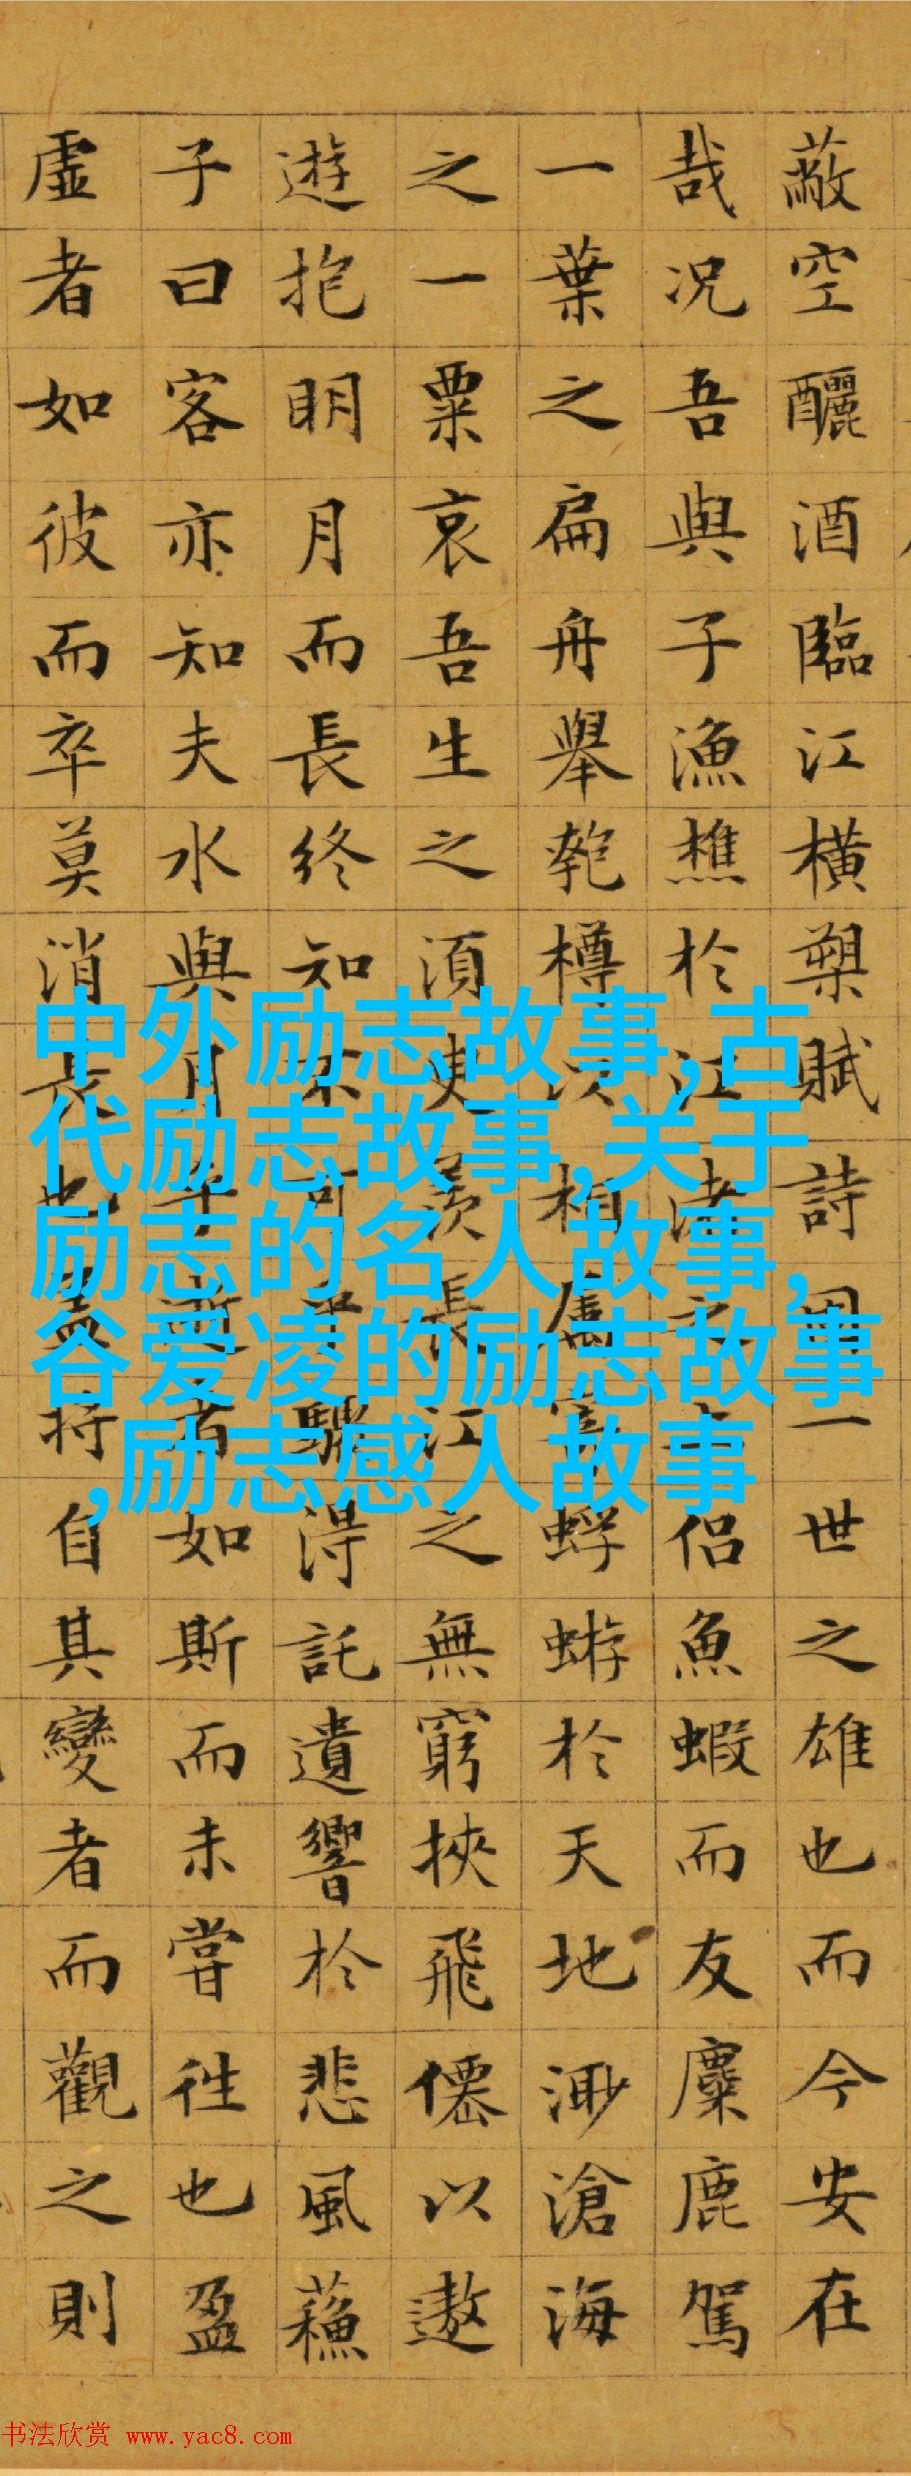 蔽空釃酒臨江橫槊賦詩固一世之雄也而今安在
哉况吾與子漁樵於江渚之上侶魚蝦而友麋鹿駕
一葉之扁舟舉匏樽以相屬寄蜉蝣於天地渺滄海
之一粟哀吾生之須臾羨長江之無窮挾飛僊以遨
遊抱明月而長終知不可乎驟得託遺響於悲風蘇
子曰客亦知夫水與月乎逝者如斯而未嘗往也盈
虛者如彼而卒莫消長也蓋將自其變者而觀之則
中外励志故事,古
代励志故事,关于
励志的名人故事,
谷爱凌的励志故事
,励志感人故事
书法欣赏 www.yac8.com